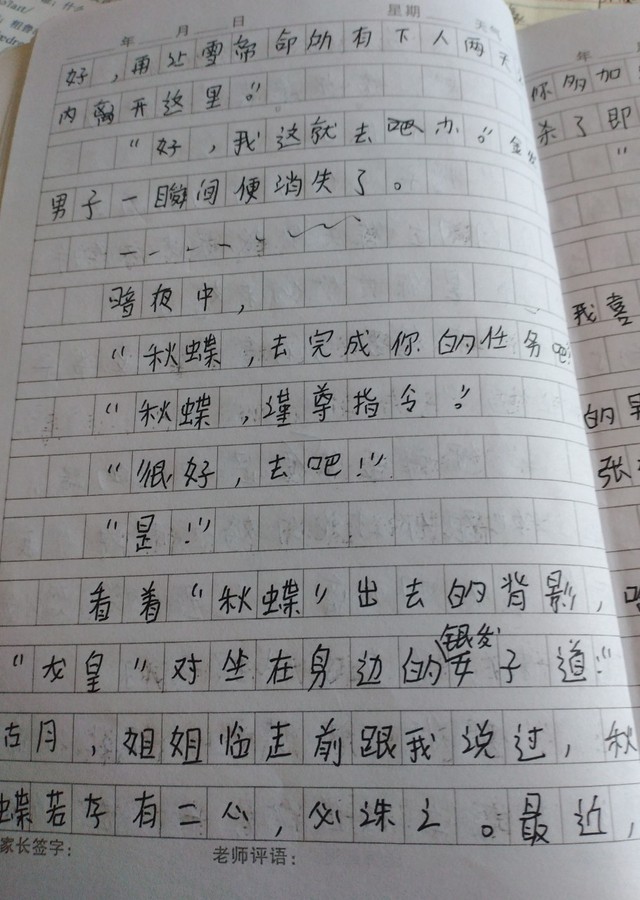 年 月 日 星期 天气
好，再让雪帝命所有下人两天，
内离开这里。”
“好，我这就去吧办。”金发
男子一瞬间便消失了。
暗夜中，
“秋蝶，去完成你的任务吧
“秋蝶，谨尊指令。”
“很好，去吧！”
“是！”
看着“秋蝶”出去的背影，
“龙皇”对坐在身边的银发女子道：“
古月，姐姐临走前跟我说过，秋
蝶若存有二心，必诛之。最近，
家长签字： 老师评语：
年 月
你多加
杀了即
“
我喜
的
张